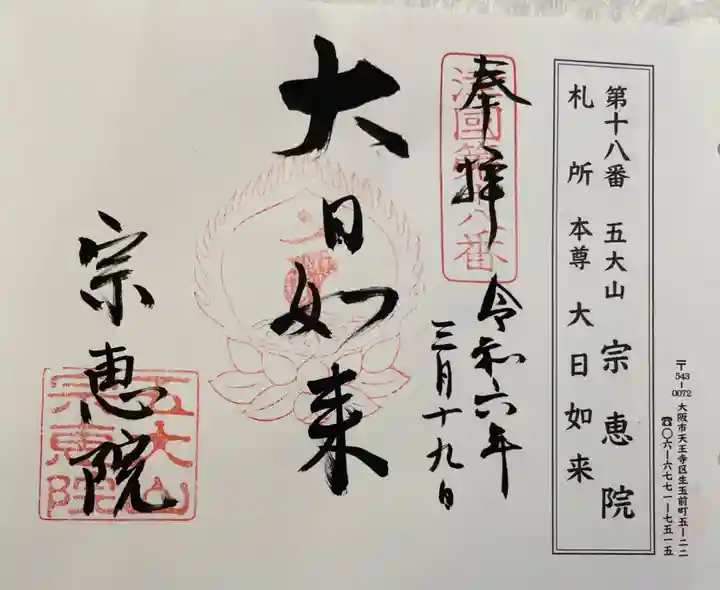 第十八番 五大山 宗恵院
札所本尊 大日如来
〒543-0072 大阪市天王寺区生玉前町五-二二
☎〇六-六七七一-七五一五
奉拝
令和六年
三月十九日
大日如来
宗恵院
五大山
宗恵院